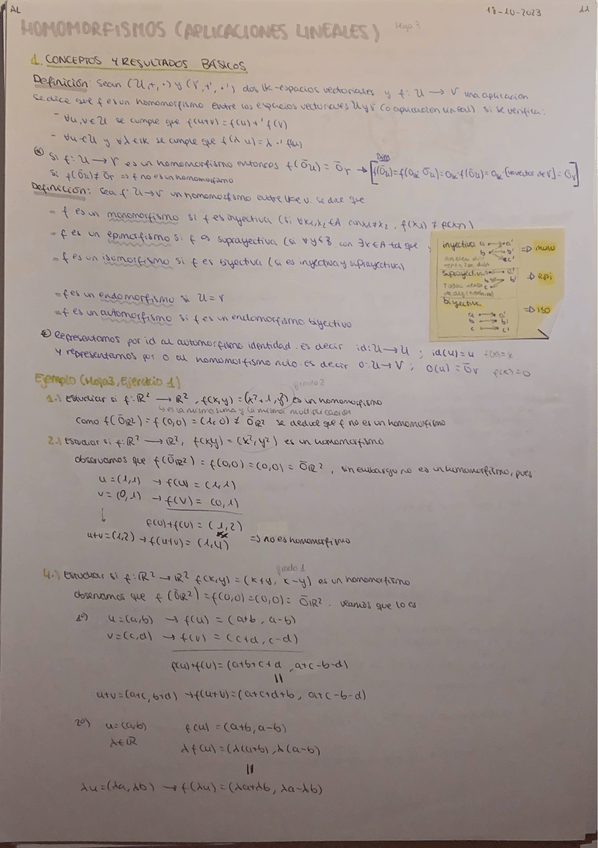 AL
18-10-2023
11
HOMOMORFISMOS (APLICACIONES LINEALES) Hoja 3
1. CONCEPTOS Y RESULTADOS BÁSICOS
Definición: Sean (U,+,·) y (V,+',·') dos K-espacios vectoriales y f: U → V una aplicación
se dice que f es un homomorfismo entre los espacios vectoriales U y V (o aplicación lineal) si se verifica:
- ∀u,v∈U se cumple que f(u+v)=f(u)+'f(v)
- ∀u∈U y ∀λ∈K se cumple que f(λ·u)=λ·'f(u)
Si f: U → V es un homomorfismo entonces f(ōu)=ōv → [f(ōu)=f(0K·ōu)=0K·f(ōu)=0K·[vector de V]=ōv]
Si f(ōu)≠ōv ⇒ f no es un homomorfismo
Definición: Sea f: U → V un homomorfismo entre U y V. se dice que
- f es un monomorfismo si f es inyectiva (si ∀x1,x2∈A con x1≠x2, f(x1)≠f(x2))
- f es un epimorfismo si f es suprayectiva (si ∀y∈B con ∃x∈A tal que
- f es un isomorfismo si f es biyectiva (si es inyectiva y suprayectiva)
inyectiva ⇒ mono
suprayectiva ⇒ epi
biyectiva ⇒ iso
- f es un endomorfismo si U=V
- f es un automorfismo si f es un endomorfismo biyectivo
Representamos por id al automorfismo identidad. es decir id: U → U ; id(u)=u f(x)=x
y representamos por 0 al homomorfismo nulo es decir 0: U → V ; 0(u)=ōv f(x)=0
Ejemplo (Hoja 3, Ejercicio 1)
grado 2
1.) Estudiar si f: R² → R², f(x,y)=(x²+1,y) es un homomorfismo
↳ es la misma suma y la misma multiplicación
como f(ōR²)=f(0,0)=(1,0)≠ōR² se deduce que f no es un homomorfismo
2.) Estudiar si f: R² → R², f(x,y)=(x²,y²) es un homomorfismo
observamos que f(ōR²)=f(0,0)=(0,0)=ōR², sin embargo no es un homomorfismo, pues
u=(1,1) → f(u)=(1,1)
v=(0,1) → f(v)=(0,1)
f(u)+f(v)=(1,2)
u+v=(1,2) → f(u+v)=(1,4) ⇒ no es homomorfismo
grado 1
4.) Estudiar si f: R² → R² f(x,y)=(x+y, x-y) es un homomorfismo
observamos que f(ōR²)=f(0,0)=(0,0)=ōR². veamos que lo es
1º) u=(a,b) → f(u)=(a+b, a-b)
v=(c,d) → f(v)=(c+d, c-d)
f(u)+f(v)=(a+b+c+d, a+c-b-d)
||
u+v=(a+c, b+d) → f(u+v)=(a+c+d+b, a+c-b-d)
2º) u=(a,b) f(u)=(a+b, a-b)
λ∈R λf(u)=(λ(a+b), λ(a-b))
||
λu=(λa, λb) → f(λu)=(λa+λb, λa-λb)